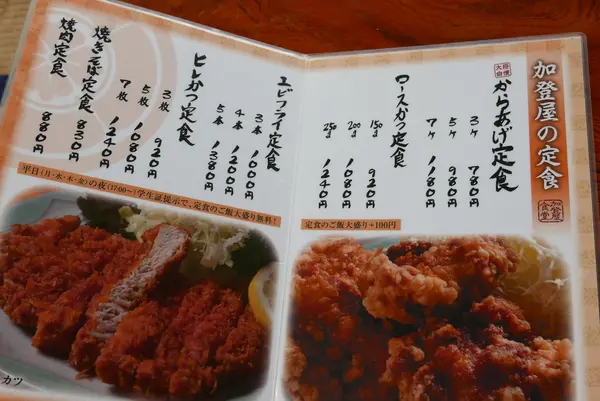 加登屋の定食
大将自慢
からあげ定食
3ケ 780円
5ケ 980円
7ケ 1180円
ロースかつ定食
150g 920円
200g 1080円
250g 1240円
定食のご飯大盛り+100円
加登屋食堂
エビフライ定食
3本 1000円
4本 1200円
5本 1380円
ヒレかつ定食
3枚 920円
5枚 1080円
7枚 1240円
焼きそば定食 830円
焼肉定食 880円
平日(月・水・木・金)の夜(17:00〜)学生証提示で、定食のご飯大盛り無料!
カツ